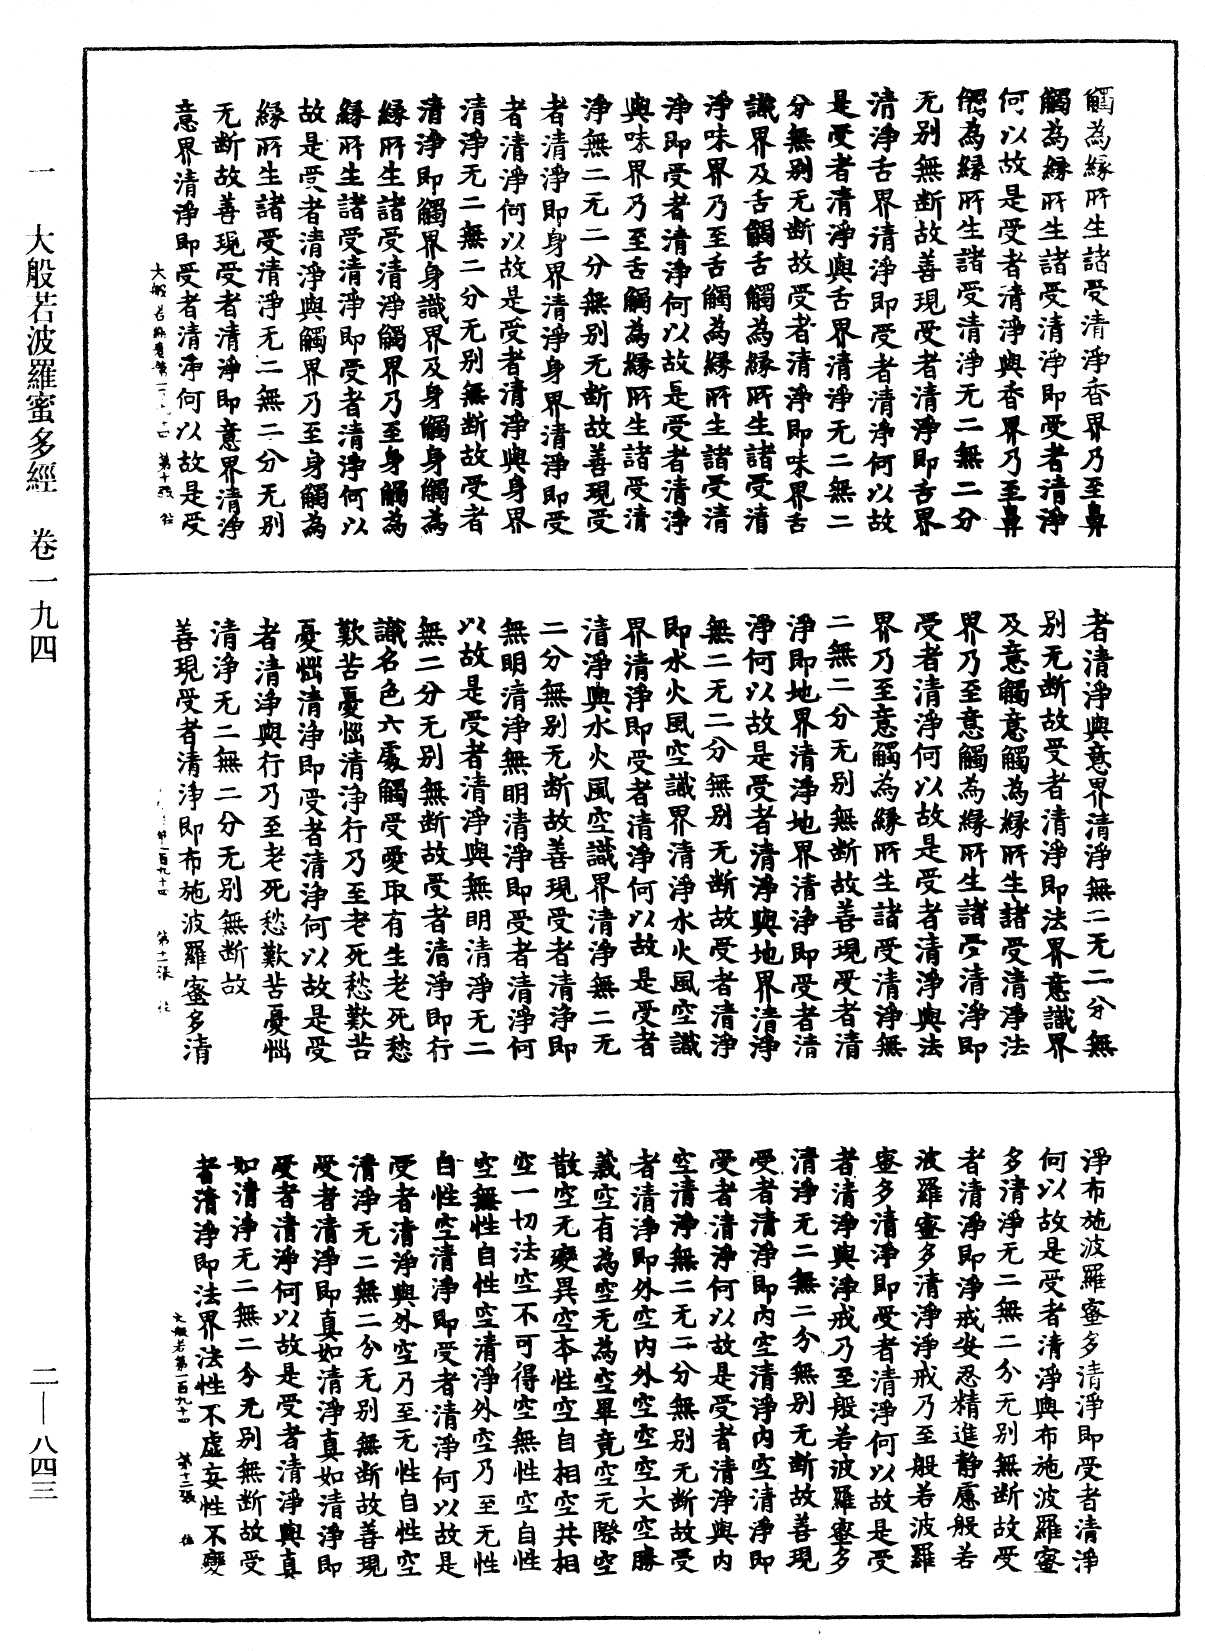 觸為緣所生諸受清淨香界乃至鼻
觸為緣所生諸受清淨即受者清淨
何以故是受者清淨與香界乃至鼻
觸為緣所生諸受清淨无二無二分
无别無断故善現受者清淨即舌界
清淨舌界清淨即受者清淨何以故
是受者清淨與舌界清淨无二無二
分無别无断故受者清淨即味界舌
識界及舌觸舌觸為緣所生諸受清
淨味界乃至舌觸為緣所生諸受清
淨即受者清淨何以故是受者清淨
與味界乃至舌觸為緣所生諸受清
淨無二无二分無别无断故善現受
者清淨即身界清淨身界清淨即受
者清淨何以故是受者清淨與身界
清淨无二無二分无别無断故受者
清淨即觸界身識界及身觸身觸為
緣所生諸受清淨觸界乃至身觸為
緣所生諸受清淨即受者清淨何以
故是受者清淨與觸界乃至身觸為
緣所生諸受清淨无二無二分无别
无断故善現受者清淨即意界清淨
意界清淨即受者清淨何以故是受
者清淨與意界清淨無二无二分無
别无断故受者清淨即法界意識界
及意觸意觸為緣所生諸受清淨法
界乃至意觸為緣所生諸受清淨即
受者清淨何以故是受者清淨與法
界乃至意觸為緣所生諸受清淨無
二無二分无别無断故善現受者清
淨即地界清淨地界清淨即受者清
淨何以故是受者清淨與地界清淨
無二无二分無别无断故受者清淨
即水火風空識界清淨水火風空識
界清淨即受者清淨何以故是受者
清淨與水火風空識界清淨無二无
二分無别无断故善現受者清淨即
無明清淨無明清淨即受者清淨何
以故是受者清淨與無明清淨无二
無二分无别無断故受者清淨即行
識名色六處觸受愛取有生老死愁
歎苦憂惱清淨行乃至老死愁歎苦
憂惱清淨即受者清淨何以故是受
者清淨與行乃至老死愁歎苦憂惱
清淨无二無二分无别無断故
善現受者清淨即布施波羅蜜多清
第一百九十四 第十一張
淨布施波羅蜜多清淨即受者清淨
何以故是受者清淨與布施波羅蜜
多清淨无二無二分无别無断故受
者清淨即淨戒安忍精進静慮般若
波羅蜜多清淨淨戒乃至般若波羅
蜜多清淨即受者清淨何以故是受
者清淨與淨戒乃至般若波羅蜜多
清淨无二無二分無别无断故善現
受者清淨即内空清淨内空清淨即
受者清淨何以故是受者清淨與内
空清淨無二无二分無别无断故受
者清淨即外空内外空空空大空勝
義空有為空无為空畢竟空无際空
散空无變異空本性空自相空共相
空一切法空不可得空無性空自性
空無性自性空清淨外空乃至无性
自性空清淨即受者清淨何以故是
受者清淨與外空乃至无性自性空
清淨无二無二分无别無断故善現
受者清淨即真如清淨真如清淨即
受者清淨何以故是受者清淨與真
如清淨无二無二分无别無断故受
者清淨即法界法性不虚妄性不變
大般若第一百九十四 第十二張
一 大般若波羅蜜多經 卷一九四
二—八四三